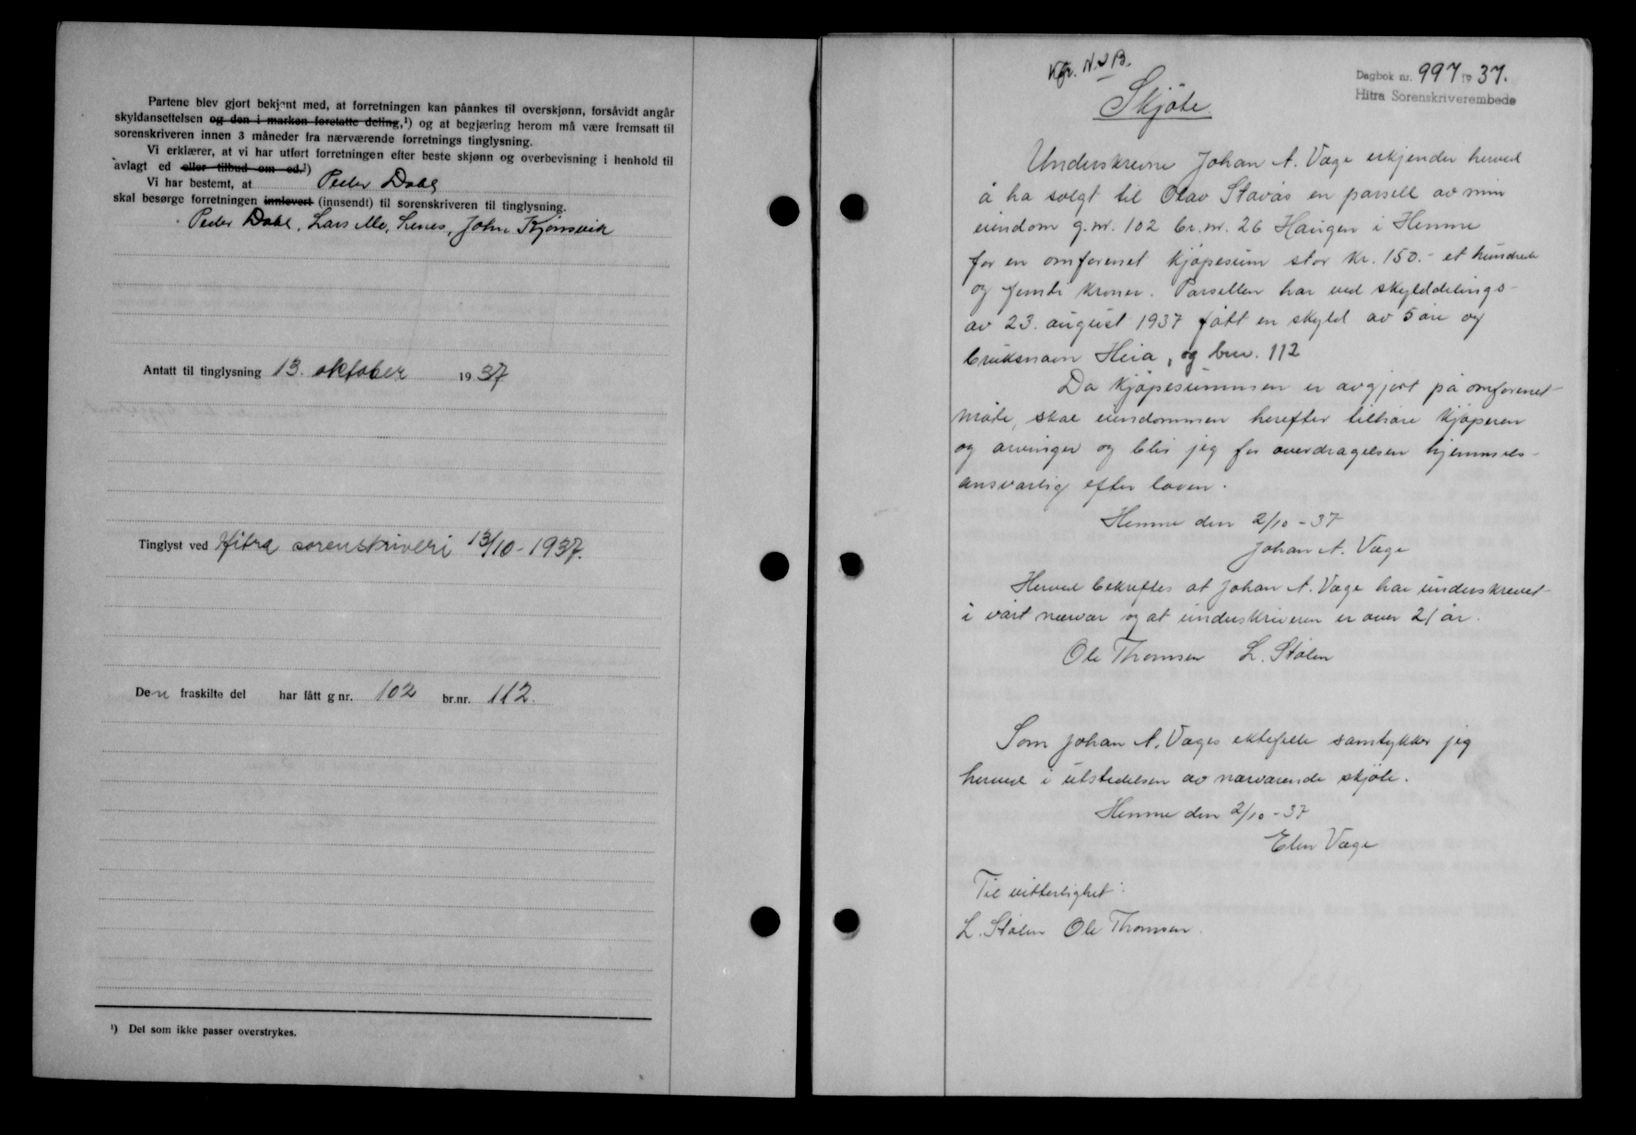 Partene blev gjort bekjent med, at forretningen kan påankes til overskjønn, forsåvidt angår
skyldansettelsen og den i marken foretatte deling,¹) og at begjæring herom må være fremsatt til
sorenskriveren innen 3 måneder fra nærværende forretnings tinglysning.
Vi erklærer, at vi har utført forretningen efter beste skjønn og overbevisning i henhold til
avlagt ed eller tilbud om ed.¹)
Vi har bestemt, at Peder Dahl
skal besørge forretningen innlevert (innsendt) til sorenskriveren til tinglysning.
Peder Dahl, Lars Mo, Lenes, John Kjønsvik
Antatt til tinglysning 13. oktober 1937
Tinglyst ved Hitra sorenskriveri 13/10-1937.
Den fraskilte del har fått gnr. 102 br.nr. 112.
¹) Det som ikke passer overstrykes.
Dagbok nr. 997 1937.
Hitra Sorenskriverembede
Skjøte
Underskrevne Johan A. Vage erkjender herved
å ha solgt til Olav Stavås en parsell av min
eiendom g.nr. 102 br.nr. 26 Haugen i Hemne
for en omforenet kjøpesum stor kr. 150.- et hundrede
og femti kroner. Parsellen har ved skylddelings-
av 23. august 1937 fått en skyld av 5 øre og
bruksnavn Heia, og brnr. 112
Da kjøpesummen er avgjort på omforenet
måte, skal eiendommen herefter tilhøre kjøperen
og arvinger og blir jeg for overdragelsen hjemmels-
ansvarlig efter loven.
Hemne den 2/10-37
Johan A. Vage
Herved bekreftes at Johan A. Vage har underskrevet
i vårt nærvær og at underskriveren er over 21 år.
Ole Thomsen L. Stølen
Som Johan A. Vages ektefelle samtykker jeg
herved i utstedelsen av nærværende skjøte.
Hemne den 2/10-37
Elen Vage
Til vitterlighet:
L. Stølen Ole Thomsen.